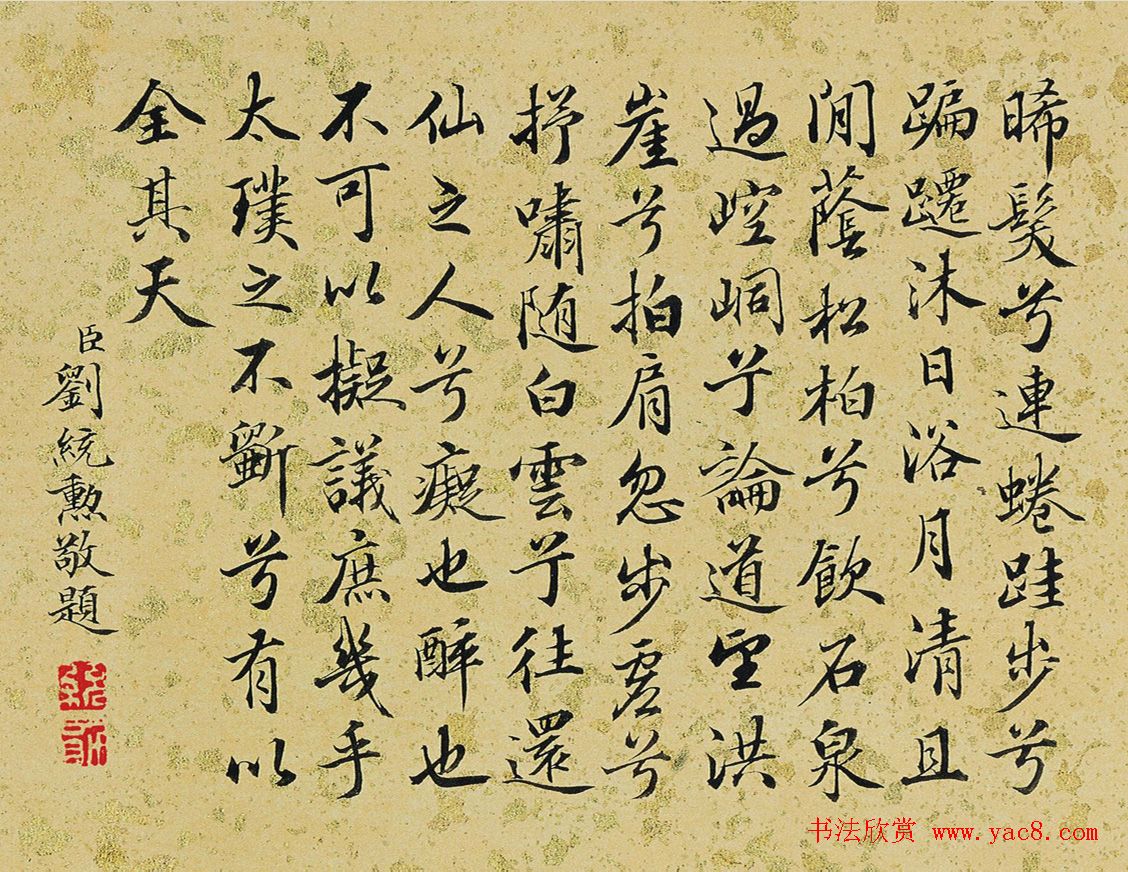 晞髮兮連蜷跬步兮
蹁躚沐日浴月清且
閒蔭松柏兮飲石泉
過崆峒兮論道望洪
崖兮拍肩忽步虛兮
抒嘯随白雲兮往還
仙之人兮癡也醉也
不可以擬議庶幾乎
太璞之不斵兮有以
全其天
臣劉統勲敬題
书法欣赏 www.yac8.com